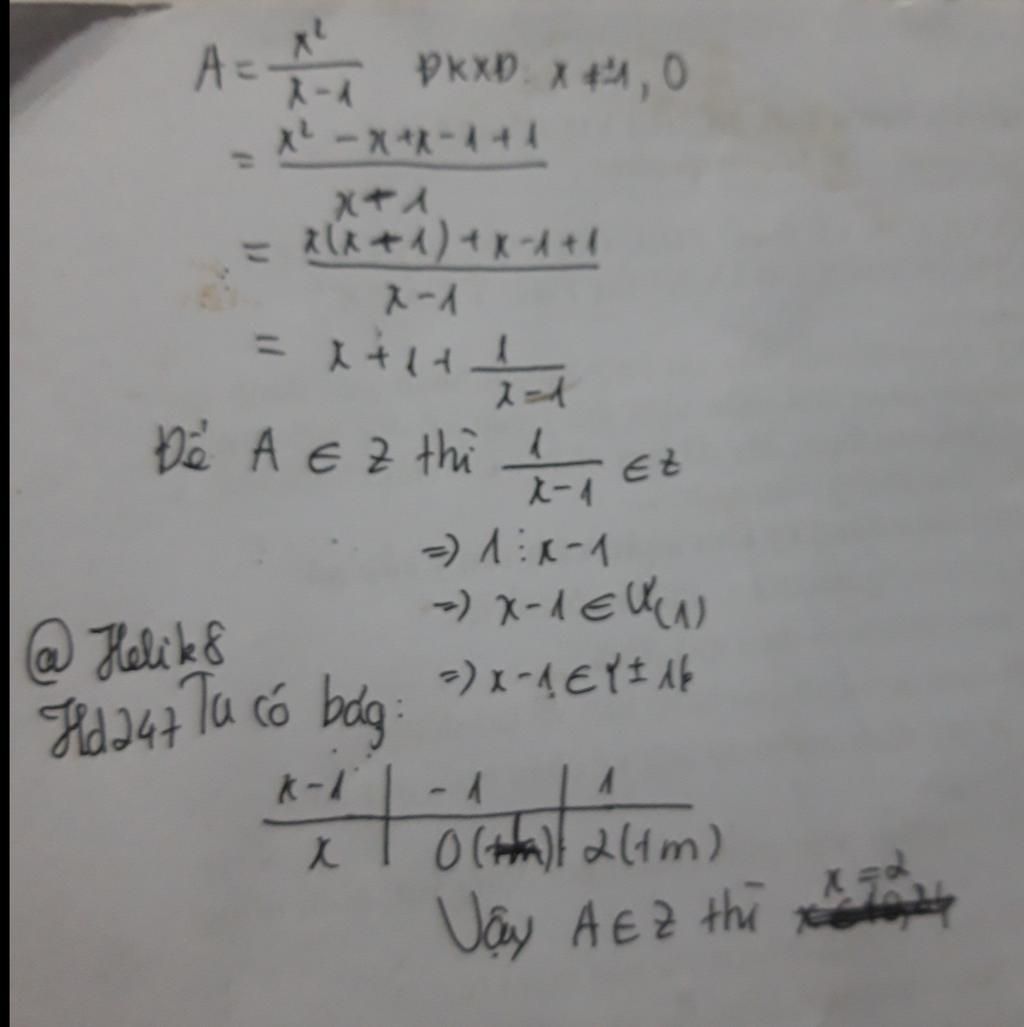 A = x²/(x-1) ĐKXĐ: x ≠ ±1, 0
= (x² - x + x - 1 + 1)/(x + 1)
= (x(x + 1) + x - 1 + 1)/(x - 1)
= x + 1 + 1/(x - 1)
Để A ∈ Z thì 1/(x - 1) ∈ Z
=> 1 ⋮ x - 1
=> x - 1 ∈ Ư(1)
=> x - 1 ∈ {± 1}
@ Helik8
Hd247
Ta có bảg:
x - 1 | - 1 | 1
x | 0 | 2 (tm)
Vậy A ∈ Z thì x = 2